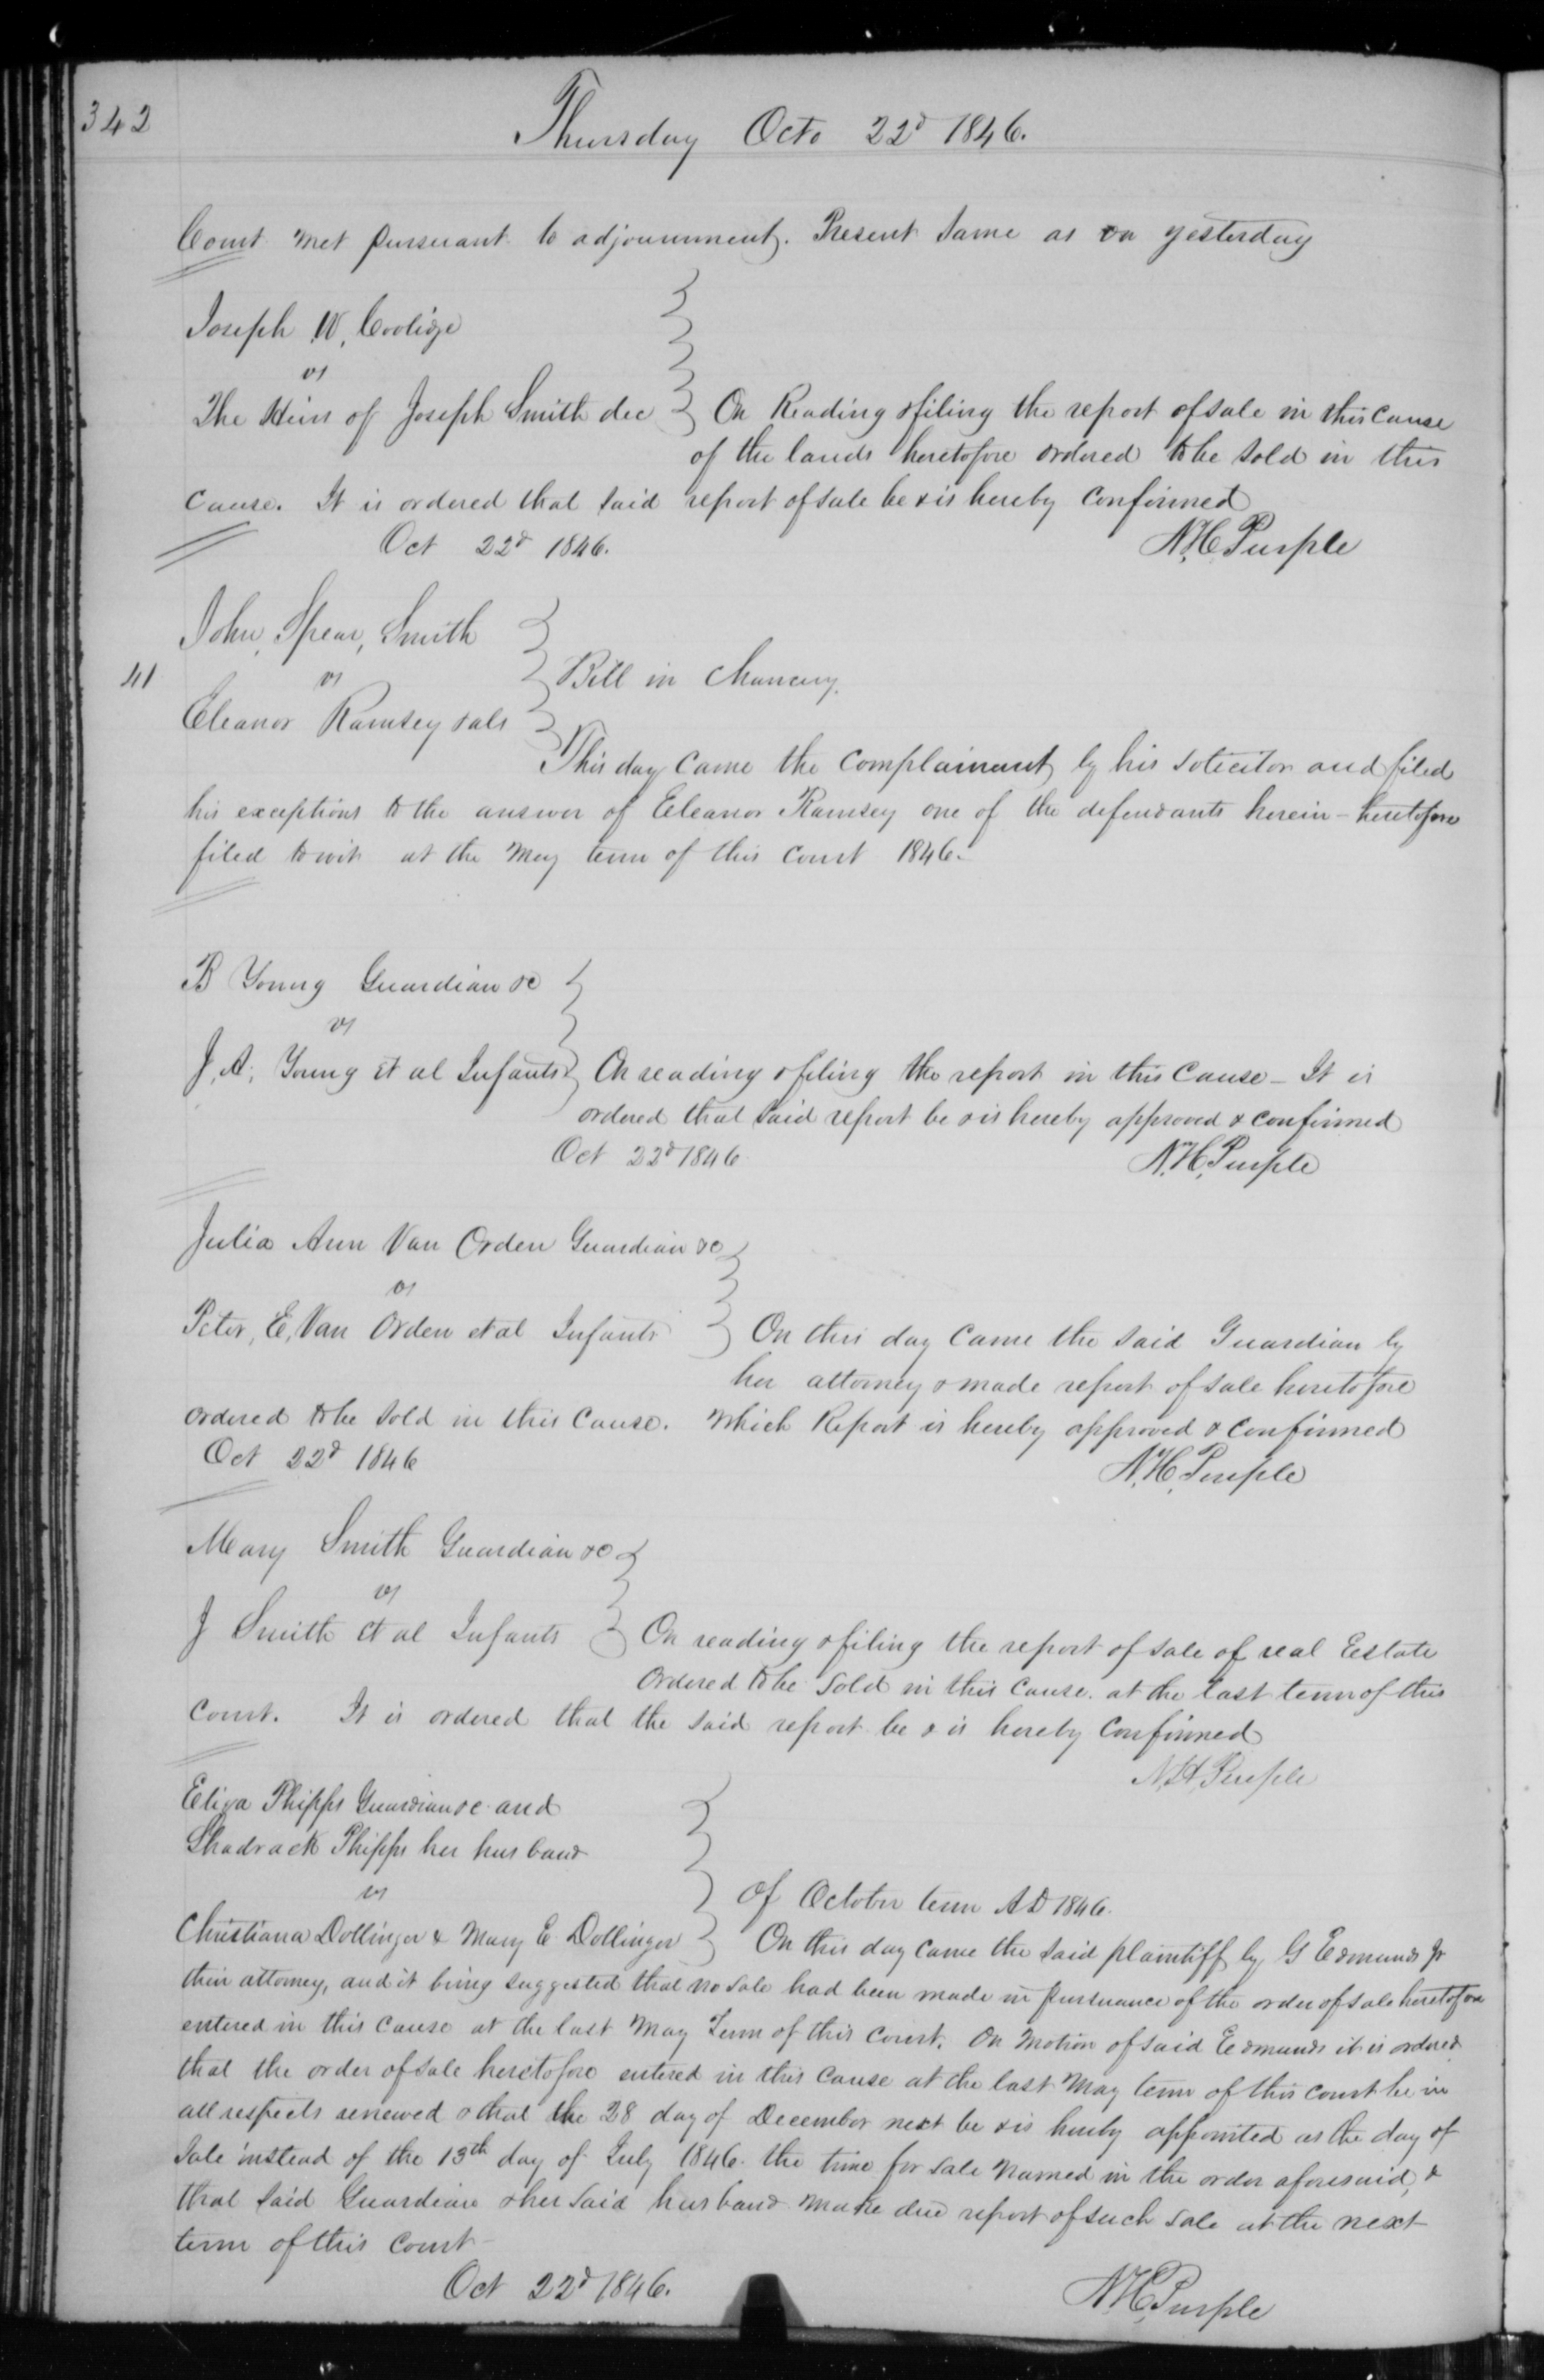 342
Thursday Octo 22d 1846.
Court met pursuant to adjournment. Present same as on yesterday
Joseph W, Coolidge
vs
The Heirs of Joseph Smith dec } On Reading & filing the report of sale in this cause
of the lands heretofore ordered to be sold in this
cause. It is ordered that said report of sale be & is hereby confirmed
Oct 22d 1846. N.H. Purple
John, Spear, Smith
41 vs } Bill in Chancery.
Eleanor Ramsey & als
This day came the complainant by his solicitor and filed
his exceptions to the answer of Eleanor Ramsey one of the defendants herein - heretofore
filed towit at the May term of this court 1846.
B Young Guardian &c
vs
J. A. Young et al Infants } On reading & filing the report in this cause - It is
ordered that said report be & is hereby approved & confirmed
Oct 22d 1846 N.H. Purple
Julia Ann Van Orden Guardian &c
vs
Peter, E, Van Orden et al Infants } On this day came the said Guardian by
her attorney & made report of sale heretofore
ordered to be sold in this cause. Which Report is hereby approved & confirmed
Oct 22d 1846 N.H. Purple
Mary Smith Guardian &c
vs
J Smith et al Infants } On reading & filing the report of sale of real Eestate
ordered to be sold in this cause. at the last term of this
court. It is ordered that the said report be & is hereby confirmed
N,H, Purple
Eliza Phipps Guardian &c and
Shadrack Phipps her husband
vs } Of October term AD 1846.
Christiana Dollinger & Mary E Dollinger } On this day came the said plaintiff by G Edmunds Jr
their attorney, and it being suggested that no sale had been made in pursuance of the order of sale heretofore
entered in this cause at the last May Term of this court. On motion of said Eedmunds it is ordered
that the order of sale heretofore entered in this cause at the last May term of this court be in
all respects renewed & that the 28 day of December next be & is hereby appointed as the day of
Sale instead of the 13th day of July 1846. the time for sale named in the order aforesaid, &
that said Guardian & her said husband make due report of such sale at the next
term of this court
Oct 22d 1846. N.H. Purple